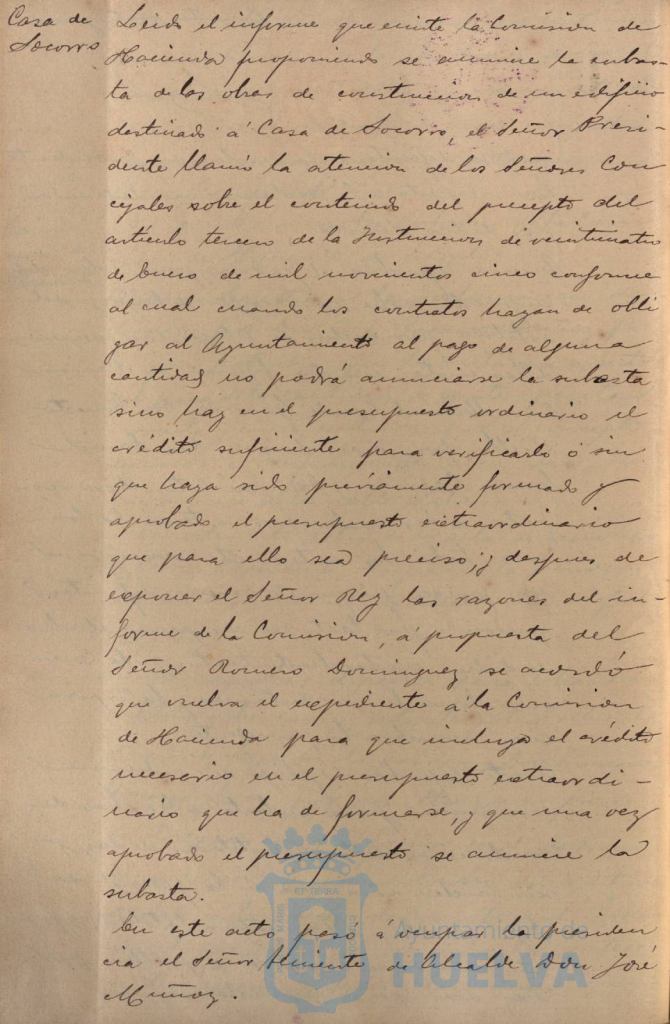 Casa de
Socorro
Leido el informe que emite la Comision de
Hacienda proponiendo se anuncie la subas-
ta de las obras de construccion de un edificio
destinado á Casa de Socorro, el Señor Presi-
dente llamó la atencion de los Señores Con
cejales sobre el contenido del precepto del
artículo tercero de la Instruccion de veinticuatro
de Enero de mil novecientos cinco conforme
al cual cuando los contratos hayan de obli
gar al Ayuntamiento al pago de alguna
cantidad no podrá anunciarse la subasta
sino hay en el presupuesto ordinario el
crédito suficiente para verificarlo ó sin
que haya sido préviamente formado y
aprobado el presupuesto extraordinario
que para ello sea preciso; y despues de
exponer el Señor Rey las razones del in-
forme de la Comision, á propuesta del
Señor Romero Dominguez se acordó
que vuelva el expediente á la Comision
de Hacienda para que incluya el crédito
necesario en el presupuesto extraordi-
nario que ha de formarse, y que una vez
aprobado el presupuesto se anuncie la
subasta.
En este acto pasó á ocupar la presiden
cia el Señor teniente de Alcalde Don José
Muñoz.
Ayuntamiento de
HUELVA